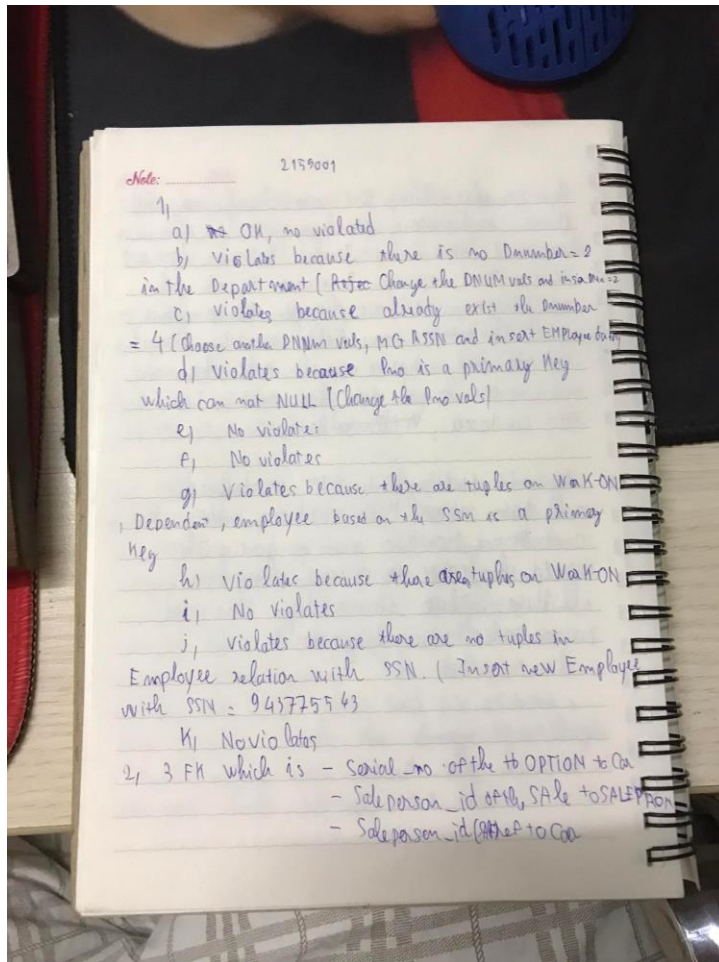 2159001
Note:
1,
a) OK, no violated
b, Violates because there is no Dnumber = 2
in the Department ( Change the DNUM vals and
c, Violates because already exist the Dnumber
= 4 (Choose another DNNum vals, MGRSSN and insert EMPloyee
d, Violates because Pno is a primary Key
which can not NULL (Change the Pno vals)
e, No violates
f, No violates
g, Violates because there are tuples on WorK-ON
, Dependent, employee based on the SSN is a primary
Key
h) Violates because there are tuples on WorK-ON
i, No violates
j, Violates because there are no tuples in
Employee relation with SSN. ( Insert new Employee
with SSN = 943775543
K, No violates
2, 3 FK which is - Serial_no of the to OPTION to Car
- Saleperson_id of the SAle to
- Saleperson_id ref to Car